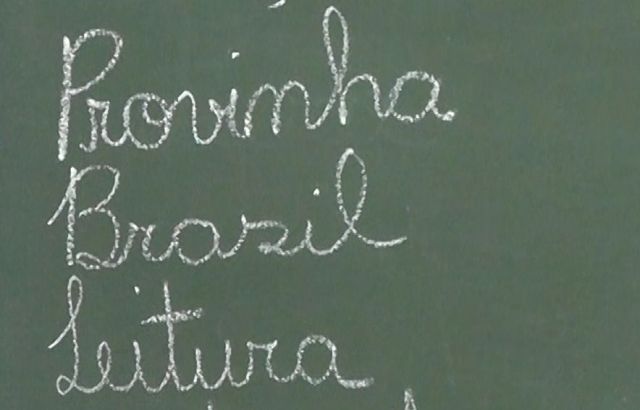 Provinha
Brasil
Leitura